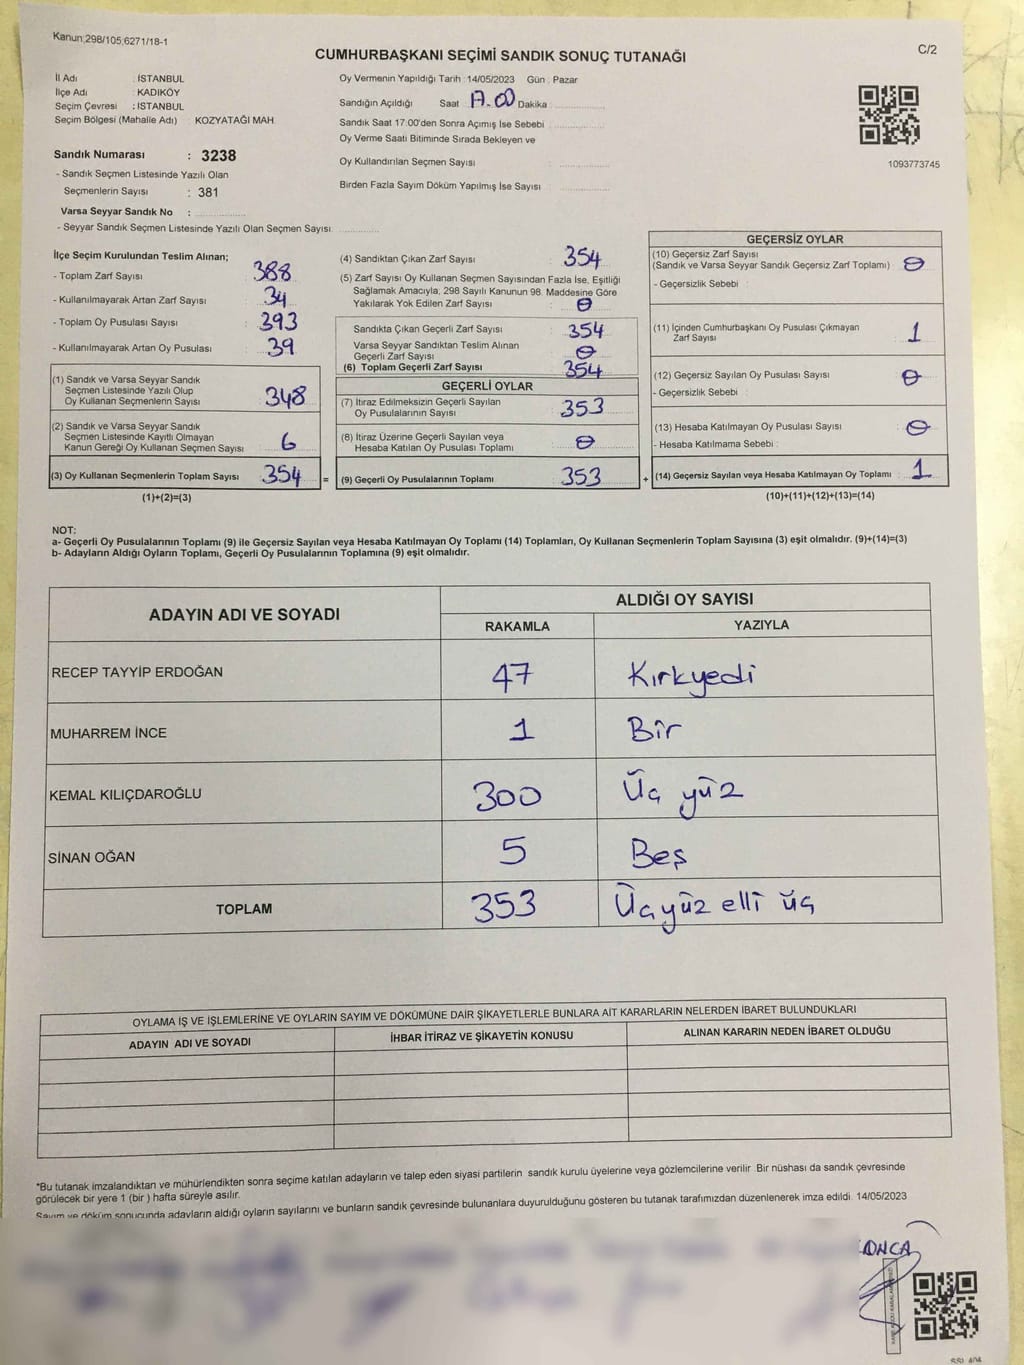 Kanun:298/105;6271/18-1
C/2
CUMHURBAŞKANI SEÇİMİ SANDIK SONUÇ TUTANAĞI
İl Adı : İSTANBUL
İlçe Adı : KADIKÖY
Seçim Çevresi : İSTANBUL
Seçim Bölgesi (Mahalle Adı) : KOZYATAĞI MAH.
Sandık Numarası : 3238
- Sandık Seçmen Listesinde Yazılı Olan
Seçmenlerin Sayısı : 381
Varsa Seyyar Sandık No :
- Seyyar Sandık Seçmen Listesinde Yazılı Olan Seçmen Sayısı:
Oy Vermenin Yapıldığı Tarih : 14/05/2023 Gün : Pazar
Sandığın Açıldığı Saat 17.00 Dakika
Sandık Saat 17:00'den Sonra Açımış İse Sebebi
Oy Verme Saati Bitiminde Sırada Bekleyen ve
Oy Kullandırılan Seçmen Sayısı
Birden Fazla Sayım Döküm Yapılmış İse Sayısı
1093773745
İlçe Seçim Kurulundan Teslim Alınan;
- Toplam Zarf Sayısı : 388
- Kullanılmayarak Artan Zarf Sayısı : 34
- Toplam Oy Pusulası Sayısı : 393
- Kullanılmayarak Artan Oy Pusulası : 39
(1) Sandık ve Varsa Seyyar Sandık
Seçmen Listesinde Yazılı Olup
Oy Kullanan Seçmenlerin Sayısı : 348
(2) Sandık ve Varsa Seyyar Sandık
Seçmen Listesinde Kayıtlı Olmayan
Kanun Gereği Oy Kullanan Seçmen Sayısı : 6
(3) Oy Kullanan Seçmenlerin Toplam Sayısı : 354
(1)+(2)=(3)
=
(4) Sandıktan Çıkan Zarf Sayısı : 354
(5) Zarf Sayısı Oy Kullanan Seçmen Sayısından Fazla İse, Eşitliği
Sağlamak Amacıyla, 298 Sayılı Kanunun 98. Maddesine Göre
Yakılarak Yok Edilen Zarf Sayısı : 0
Sandıkta Çıkan Geçerli Zarf Sayısı : 354
Varsa Seyyar Sandıktan Teslim Alınan
Geçerli Zarf Sayısı : 0
(6) Toplam Geçerli Zarf Sayısı : 354
GEÇERLİ OYLAR
(7) İtiraz Edilmeksizin Geçerli Sayılan
Oy Pusulalarının Sayısı : 353
(8) İtiraz Üzerine Geçerli Sayılan veya
Hesaba Katılan Oy Pusulası Toplamı : 0
(9) Geçerli Oy Pusulalarının Toplamı : 353
+
GEÇERSİZ OYLAR
(10) Geçersiz Zarf Sayısı
(Sandık ve Varsa Seyyar Sandık Geçersiz Zarf Toplamı) : 0
- Geçersizlik Sebebi :
(11) İçinden Cumhurbaşkanı Oy Pusulası Çıkmayan
Zarf Sayısı : 1
(12) Geçersiz Sayılan Oy Pusulası Sayısı : 0
- Geçersizlik Sebebi :
(13) Hesaba Katılmayan Oy Pusulası Sayısı : 0
- Hesaba Katılmama Sebebi :
(14) Geçersiz Sayılan veya Hesaba Katılmayan Oy Toplamı : 1
(10)+(11)+(12)+(13)=(14)
NOT:
a- Geçerli Oy Pusulalarının Toplamı (9) ile Geçersiz Sayılan veya Hesaba Katılmayan Oy Toplamı (14) Toplamları, Oy Kullanan Seçmenlerin Toplam Sayısına (3) eşit olmalıdır. (9)+(14)=(3)
b- Adayların Aldığı Oyların Toplamı, Geçerli Oy Pusulalarının Toplamına (9) eşit olmalıdır.
ADAYIN ADI VE SOYADI ALDIĞI OY SAYISI
RAKAMLA YAZIYLA
RECEP TAYYİP ERDOĞAN 47 Kırkyedi
MUHARREM İNCE 1 Bir
KEMAL KILIÇDAROĞLU 300 Üç yüz
SİNAN OĞAN 5 Beş
TOPLAM 353 Üçyüz elli üç
OYLAMA İŞ VE İŞLEMLERİNE VE OYLARIN SAYIM VE DÖKÜMÜNE DAİR ŞİKAYETLERLE BUNLARA AİT KARARLARIN NELERDEN İBARET BULUNDUKLARI
ADAYIN ADI VE SOYADI İHBAR İTİRAZ VE ŞİKAYETİN KONUSU ALINAN KARARIN NEDEN İBARET OLDUĞU
*Bu tutanak imzalandıktan ve mühürlendikten sonra seçime katılan adayların ve talep eden siyasi partilerin sandık kurulu üyelerine veya gözlemcilerine verilir. Bir nüshası da sandık çevresinde
görülecek bir yere 1 (bir ) hafta süreyle asılır.
Sayım ve döküm sonucunda adayların aldığı oyların sayılarını ve bunların sandık çevresinde bulunanlara duyurulduğunu gösteren bu tutanak tarafımızdan düzenlenerek imza edildi. 14/05/2023
ONCA